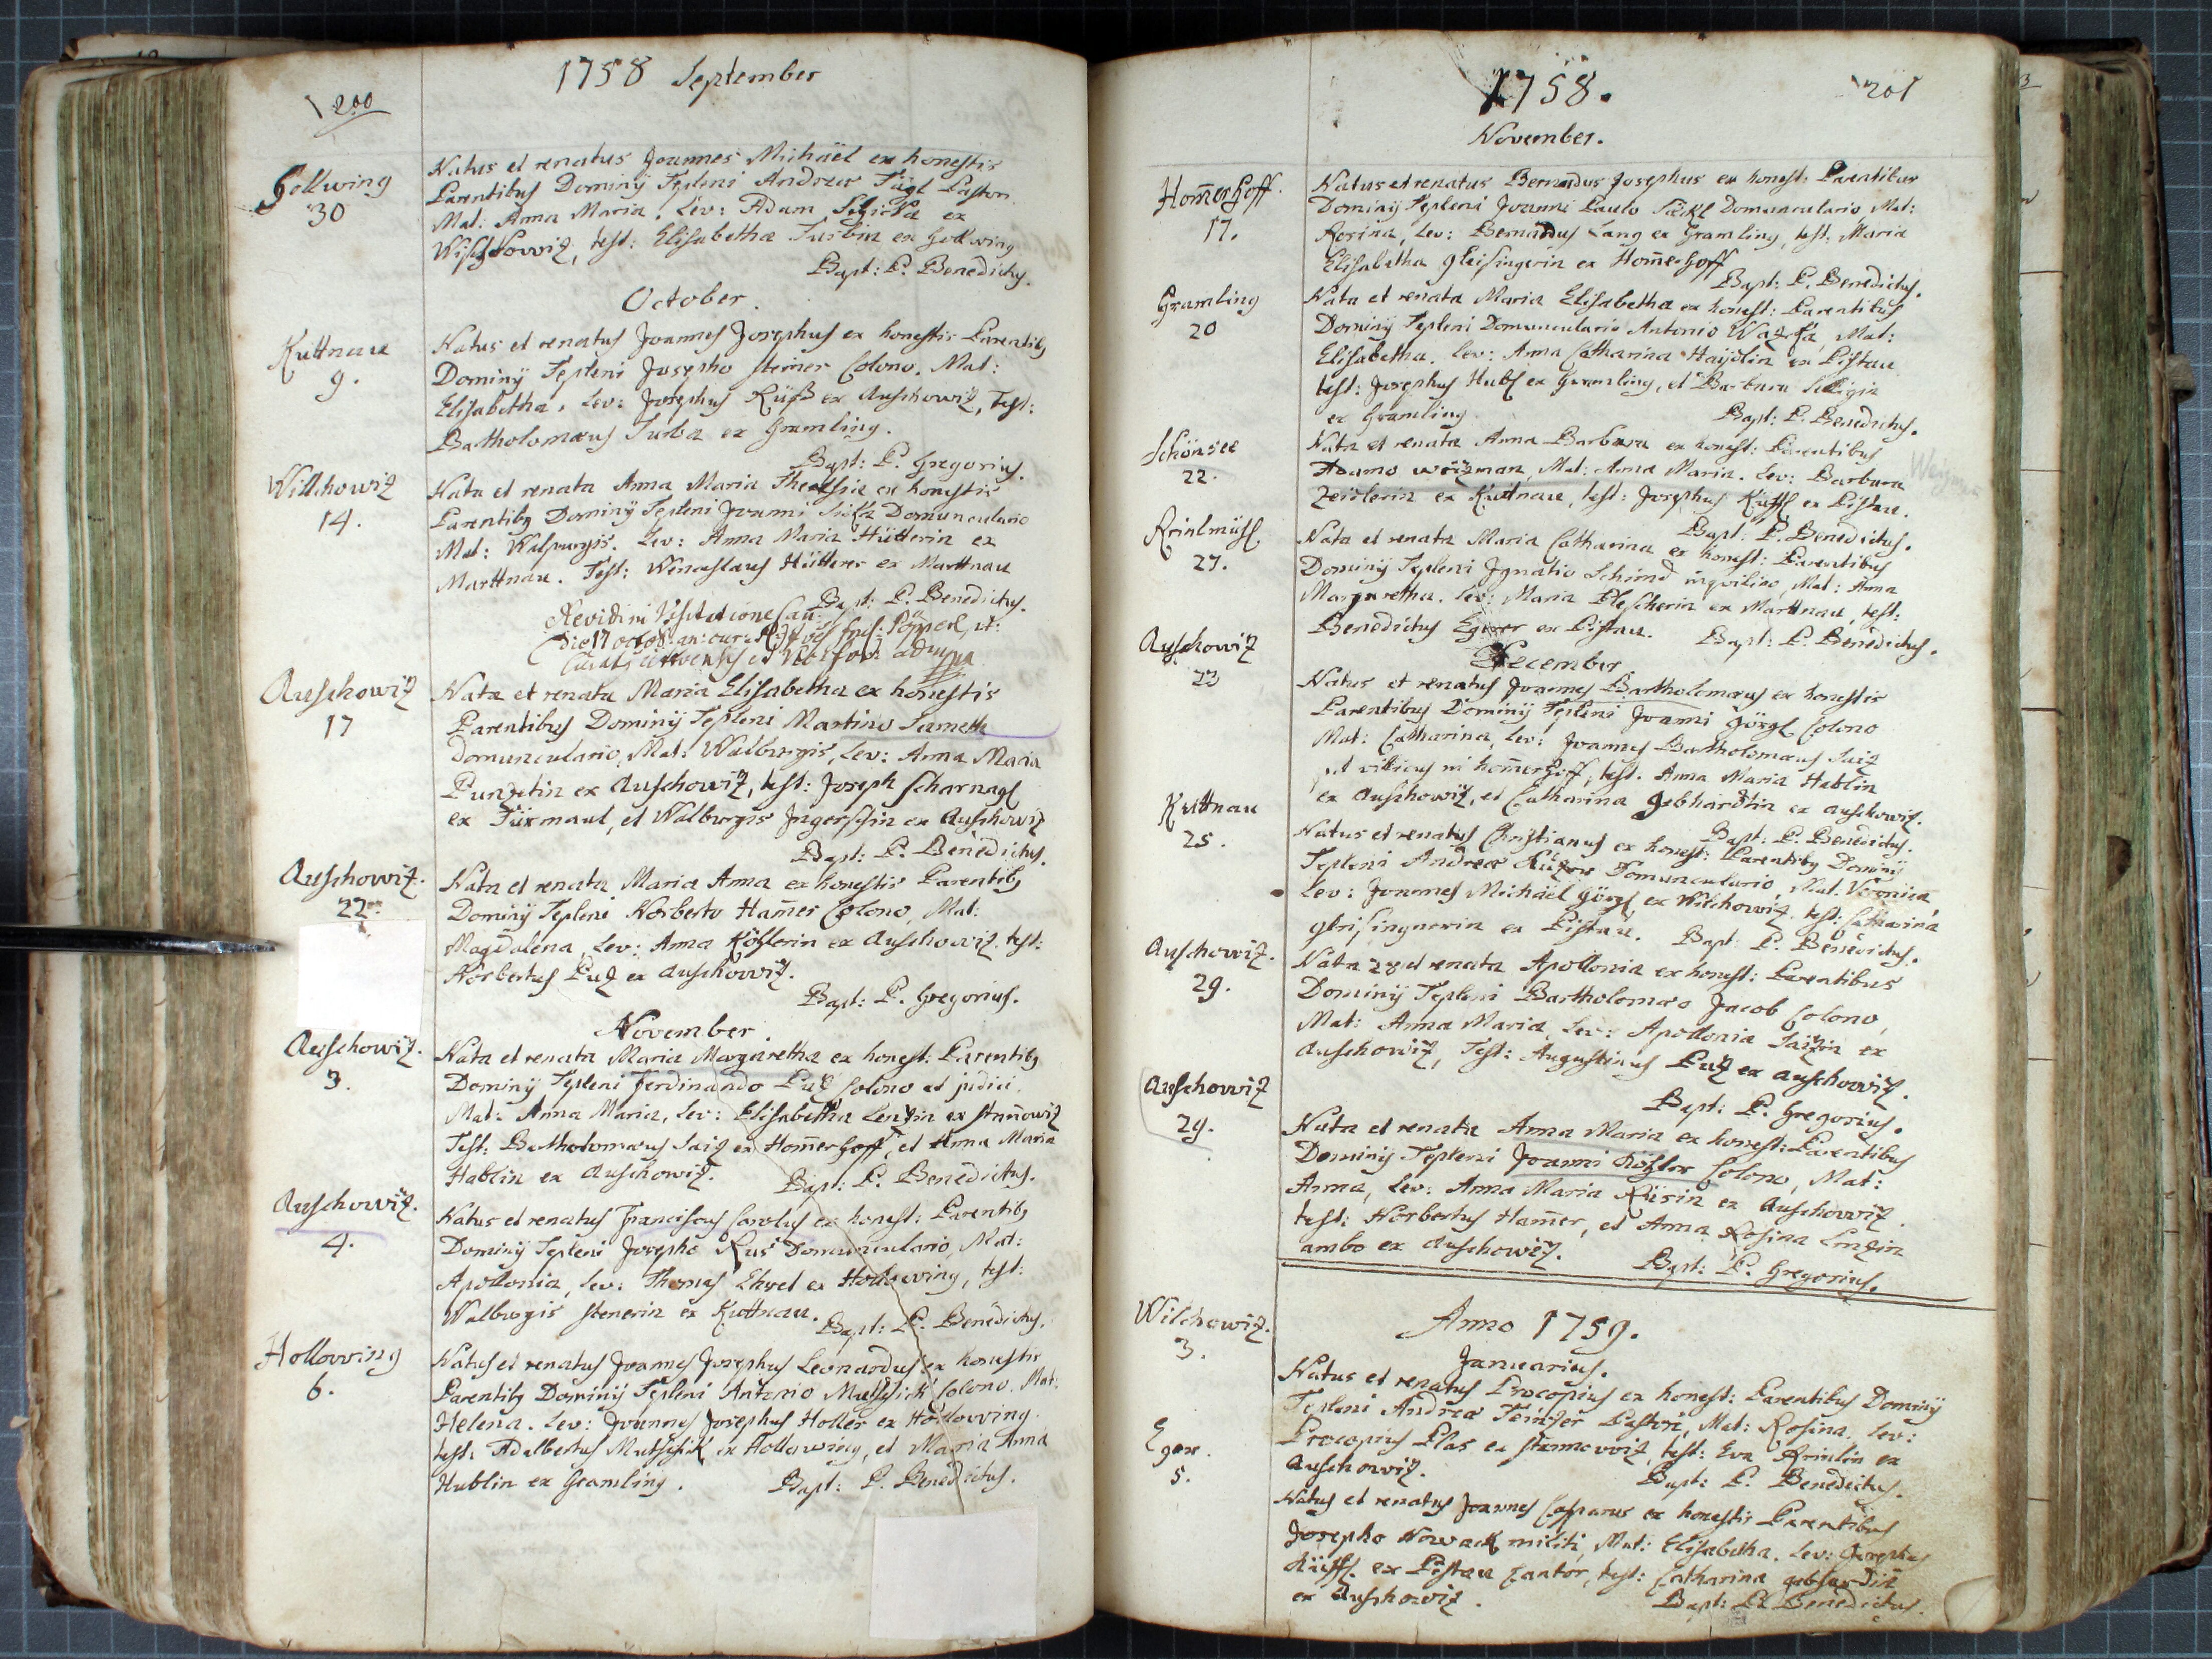 200
1758 September
Gollwing
30
Natus et renatus Joannes Michäel ex honestis
Parentibus Dominÿ Tepleni Andrea Pastori
Mat: Anna Maria. Lev: Adam ex
test: Elisabetha Turbin ex Gollwing
Bapt: P. Benedictus.
October.
Kuttnau
9.
Natus et renatus Joannes Josephus ex honestis Parentibg
Dominÿ Tepleni Josepho Steiner Colono. Mat:
Elisabetha, Lev: Josephus Rüß ex Auschowiz, Test:
Bartholomæus Turba ex Gramling.
Bapt: P. Gregorius.
Wilchowiz
14.
Nata et renata Anna Maria Theresia ex honestis
Parentibg Dominÿ Tepleni Joanni Domunculario
Mat: Walpurgis. Lev: Anna Maria Hütterin ex
Marttnau. Test: Wenceslaus Hütterer ex Marttnau
Bapt: P. Benedictus.
Revidi in Visitatione
Die 17 octob:
Auschowiz
17
Nata et renata Maria Elisabetha ex honestis
Parentibus Dominÿ Tepleni Martino Sameth
Domunculario, Mat: Walburgis, Lev: Anna Maria
ex Auschowiz, test: Joseph Scharnagl
ex Türmaul, et Walburgis ex Auschowiz
Bapt: P. Benedictus.
Auschowiz.
22.
Nata et renata Maria Anna ex honestis Parentibg
Dominÿ Tepleni Norberto Ham̄er Colono, Mat:
Magdalena, Lev: Anna Köhlerin ex Auschowiz. test:
Norbertus Puz ex Auschowiz.
Bapt: P. Gregorius.
November.
Auschowiz.
3.
Nata et renata Maria Margaretha ex honest: Parentibg
Dominÿ Tepleni Ferdinando Puz Colono et judici,
Mat: Anna Maria, Lev: Elisabetha Lenzin ex Stan̄owiz
Test: Bartholomæus Saiz ex Hom̄erhoff, et Anna Maria
Hablin ex Auschowiz.
Bapt: P. Benedictus.
Auschowiz.
4.
Natus et renatus Franciscus Carolus ex honest: Parentibg
Dominÿ Tepleni Josepho Rus Domunculario, Mat:
Apollonia, Lev: Thomas ex Hollowing, test:
Walburgis Stenerin ex Kuttnau.
Bapt: P. Benedictus.
Hollowing
6.
Natus et renatus Joannes Josephus Leonardus ex honestis
Parentibg Dominÿ Tepleni Antonio Mutschik Colono. Mat:
Helena. Lev: Joannes Josephus Holler ex Hollowing.
test: Adalbertus Mutschik ex Hollowing, et Maria Anna
Hublin ex Gramling.
Bapt: P. Benedictus.
201
1758.
November.
Hom̄erhoff.
17.
Natus et renatus Bernardus Josephus ex honest: Parentibus
Dominÿ Tepleni Joanni Paulo Domunculario Mat:
Rosina, Lev: Bernardus Lang ex Gramling, test: Maria
Elisabetha Gleisingerin ex Hom̄erhoff
Bapt: P. Benedictus.
Gramling
20
Nata et renata Maria Elisabetha ex honest: Parentibus
Dominÿ Tepleni Domunculario Antonio Mat:
Elisabetha. Lev: Anna Catharina Haÿdlin ex Pistau
test: Josephus Hubl ex Gramling, et Barbara
ex Gramling
Bapt: P. Benedictus.
Schönsee
22.
Nata et renata Anna Barbara ex honest: Parentibus
Adamo weizman, Mat: Anna Maria. Lev: Barbara
Zeidlerin ex Kuttnau, test: Josephus ex Pistau.
Bapt: P. Benedictus.
27.
Nata et renata Maria Catharina ex honest: Parentibus
Dominÿ Tepleni Ignatio Schimd inquilino, Mat: Anna
Margaretha. Lev: Maria Plescherin ex Marttnau, test:
Benedictus Egerer ex Pistau.
Bapt: P. Benedictus.
December
Auschowiz
23
Natus et renatus Joannes Bartholomæus ex honestis
Parentibus Dominÿ Tepleni Joanni Görgl Colono
Mat: Catharina, Lev: Joannes Bartholomæus Saiz
villicus in hom̄erhoff, test. Anna Maria Hablin
ex Auschowiz, et Catharina Gebhardtin ex Auschowiz.
Bapt: P. Benedictus.
Kuttnau
25.
Natus et renatus Christianus ex honest: Parentibg Dominÿ
Tepleni Andrea Domunculario, Mat. Veronica,
Lev: Joannes Michäel Görgl ex Wilchowiz. test: Catharina
gleisingnerin ex Pistau.
Bapt: P. Benedictus.
Auschowiz.
29.
Nata 28 et renata Apollonia ex honest: Parentibus
Dominÿ Tepleni Bartholomæo Jacob Colono,
Mat: Anna Maria, Lev: Apollonia Saizin ex
Auschowiz, Test: Augustinus Puz ex Auschowiz.
Bapt: P. Gregorius.
Auschowiz
29.
Nata et renata Anna Maria ex honest: Parentibus
Dominÿ Tepleni Joanni Köhler Colono, Mat:
Anna, Lev: Anna Maria Rüsin ex Auschowiz.
test: Norbertus Ham̄er, et Anna Rosina Lenzin
ambo ex Auschowiz.
Bapt: P. Gregorius.
Anno 1759.
Januarius.
Wilchowiz.
3.
Natus et renatus Procopius ex honest: Parentibus Dominÿ
Tepleni Andrea Pastori, Mat: Rosina. Lev:
Procopius Plas ex Stannowiz, test: Eva ex
Auschowiz.
Bapt: P. Benedictus.
Eger.
5.
Natus et renatus Joannes Casparus ex honestis Parentibus
Josepho Nowack militi, Mat: Elisabetha. Lev: Josephus
ex Pistau Cantor, test: Catharina gebhardtin
ex Auschowiz.
Bapt: P. Benedictus.